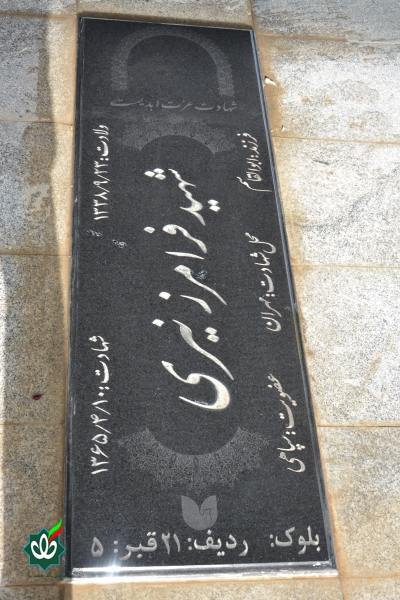 شهادت عزت ابدیست
فرزند: ابوالقاسم
ولادت: ۱۳۳۸/۹/۲۳
شهید فرامرز نیری
محل شهادت: مهران
شهادت: ۱۳۶۵/۴/۱۰
عضویت: سپاهی
بلوک: ردیف: ۲۱ قبر: ۵